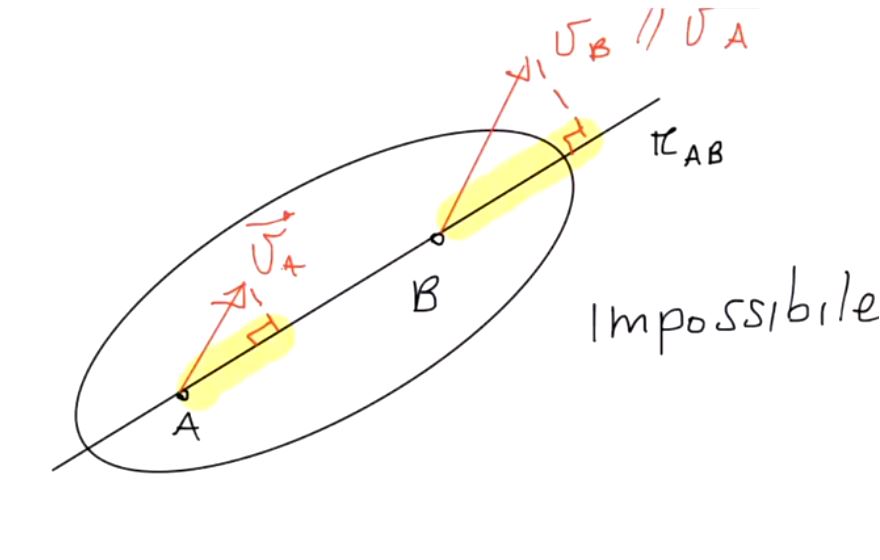 v_B // v_A
r_AB
v⃗_A
B
Impossibile
A